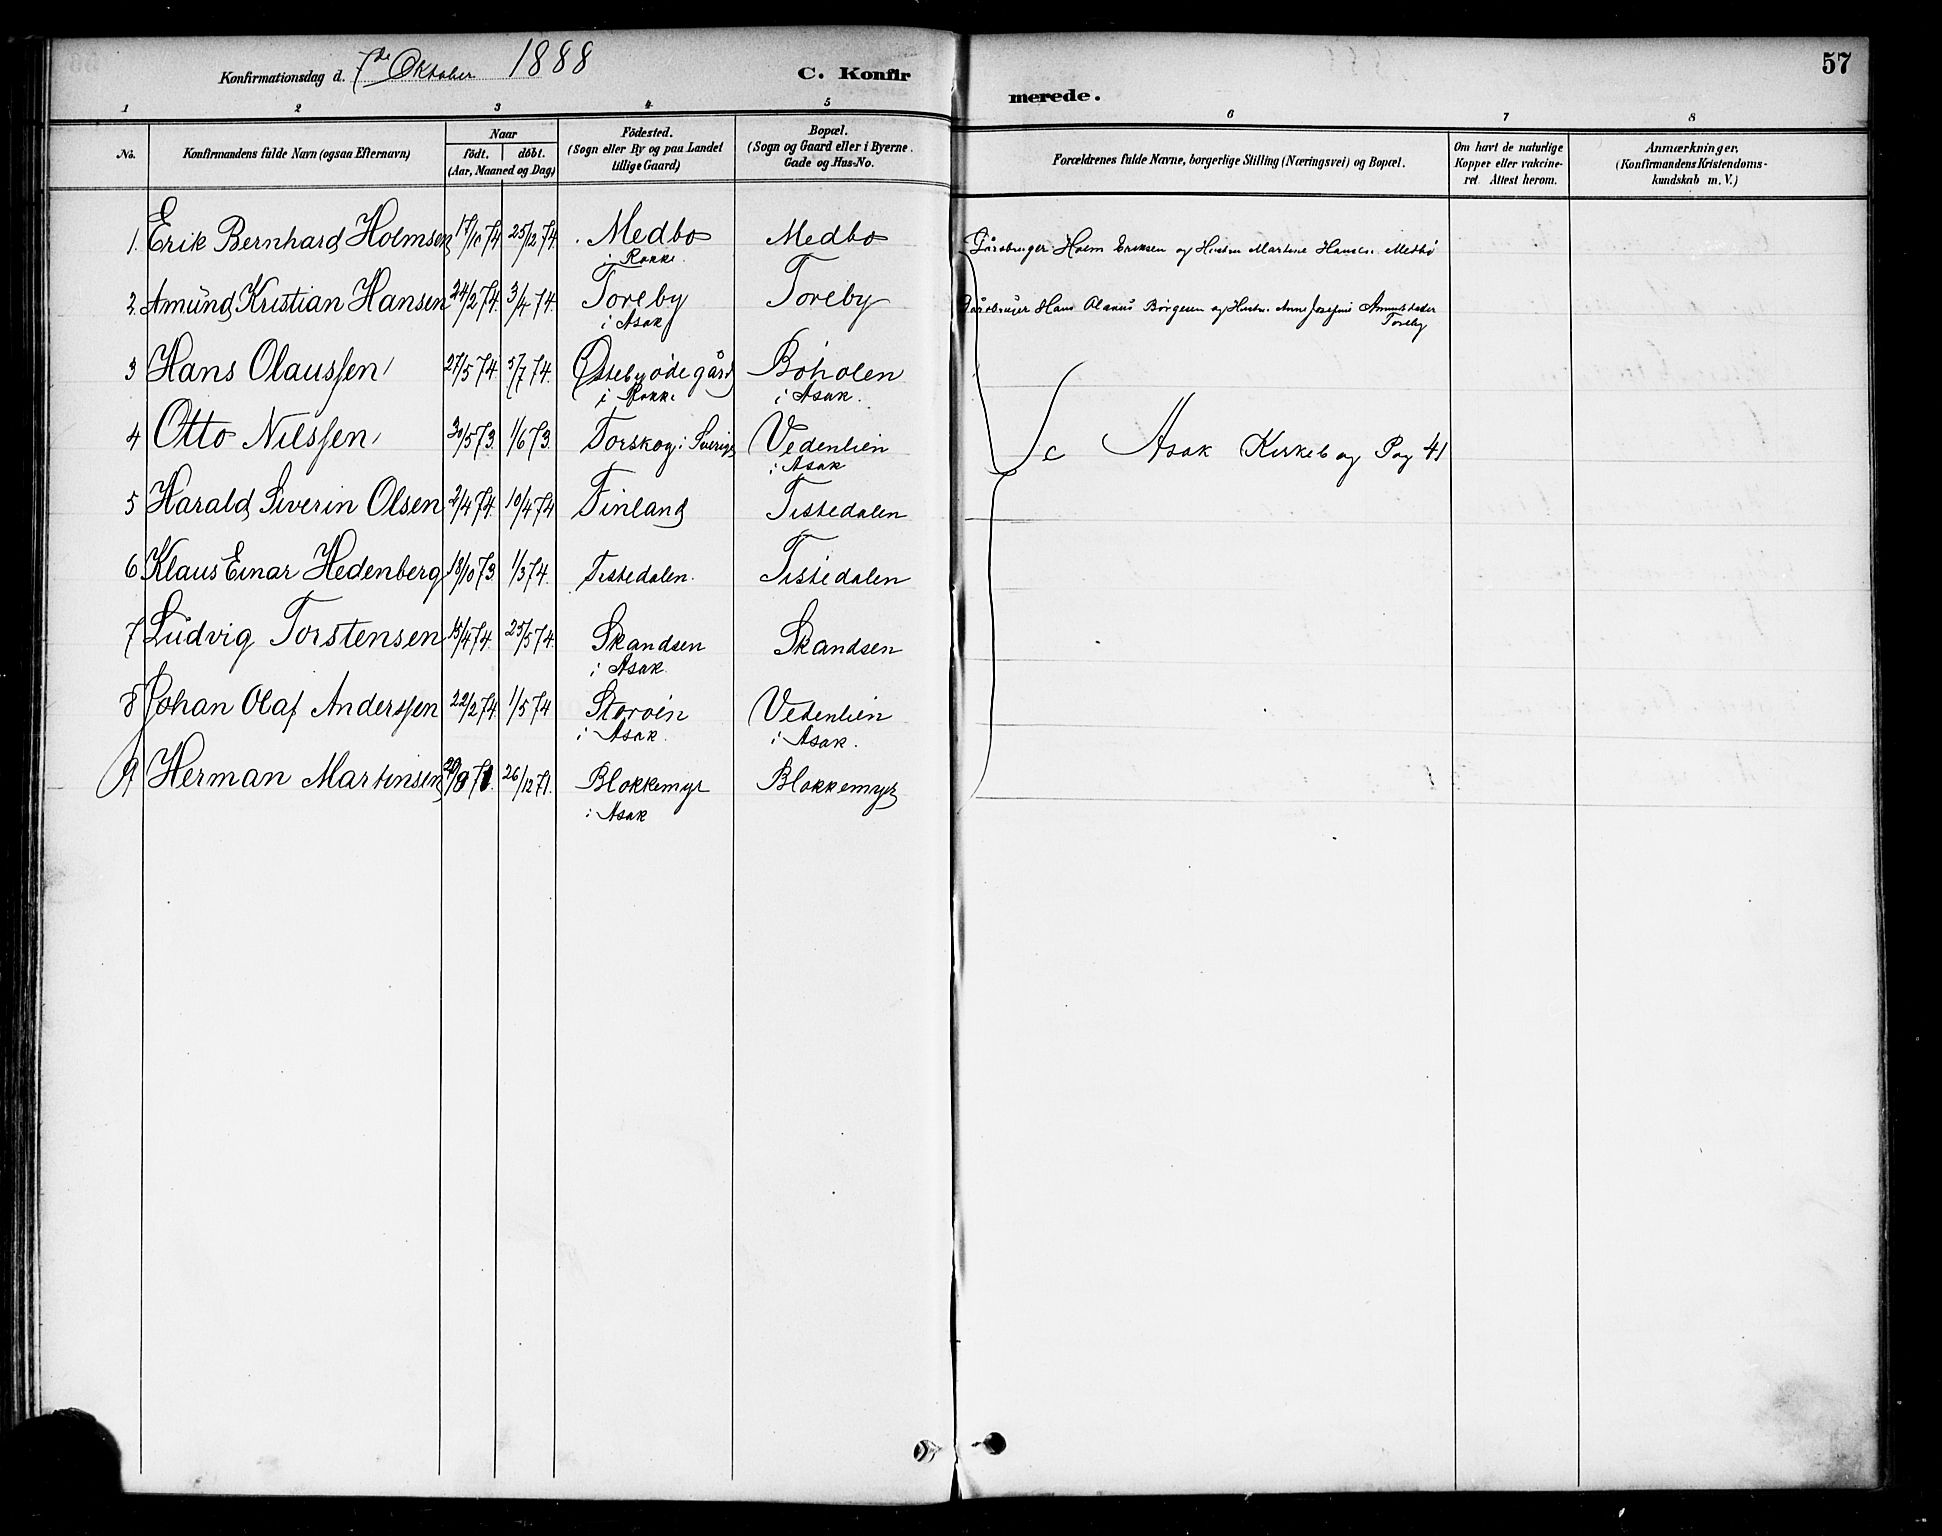 Konfirmationsdag d. 7de Oktober 1888
C. Konfir
merede.
57
1 2 3 4 5 6 7 8
No.
Konfirmandens fulde Navn (ogsaa Efternavn)
Naar
födt. döbt.
(Aar, Maaned og Dag)
Födested.
(Sogn eller By og paa Landet
tillige Gaard)
Bopæl.
(Sogn og Gaard eller i Byerne.
Gade og Hus-No.
Forældrenes fulde Navne, borgerlige Stilling (Næringsvei) og Bopæl.
Om havt de naturlige
Kopper eller vakcine-
ret. Attest herom.
Anmærkninger.
(Konfirmandens Kristendoms-
kundskab m. V.)
1. Erik Bernhard Holmsen 17/10 74 25/12 74. Medbo Medbo Gårdbruger Holm Eriksen og Hustru Martine Hansd. Medbö
i Rokke.
2. Amund Kristian Hansen 24/2 74. 3/4 74. Toreby Toreby Gårdbruger Hans Olaves Börgesen og Hustr. Anne Josefine Amundsdatter
i Asak Toreby
3 Hans Olaussen 27/5 74. 5/7 74. Östebyödegård Boholen
i Rokke i Asak.
4 Otto Nilssen 30/5 73. 1/6 73. Torskog i Sverige Vedenlien
i Asak
Se Asak Kirkebog Pag 41
5 Harald Severin Olsen 2/4 74. 10/4 74 Finland Tistedalen
6 Klaus Einar Hedenberg 18/10 73. 1/3 74. Tistedalen. Tistedalen
7 Ludvig Torstensen 15/4 74. 25/5 74. Skandsen Skandsen
i Asak.
8 Johan Olaf Anderssen 22/2 74. 1/5 74 Vedenlien
i Asak. i Asak.
9 Herman Martinsen 71. 26/12 71. Blokkemyr Blokkemyr
i Asak